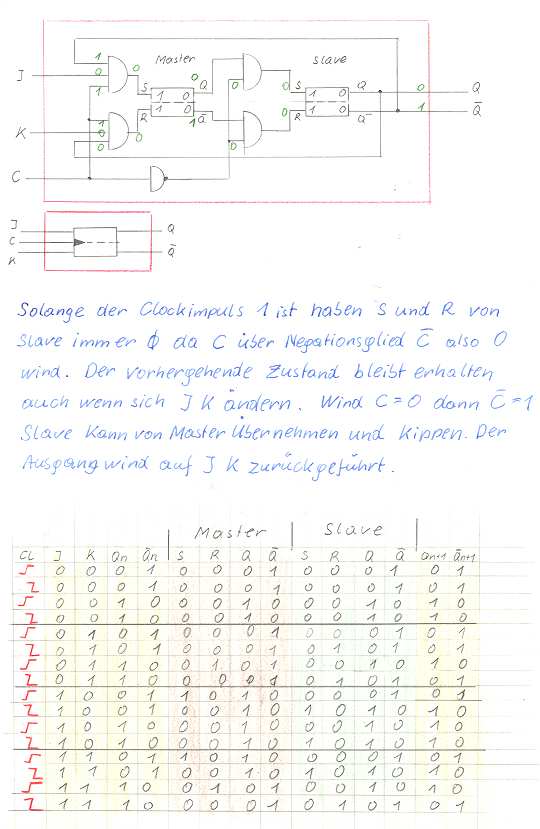 Master Slave
1 0 0 Q 0 S Q 0 Q
J 0 S 1 0 1 0
1 1 0 R Q̄ 1 0 1 Q̄
K 1 0 0 R 1 Q̄ 0 0 Q̄
0 0
C
J Q
C
K Q̄
Solange der Clockimpuls 1 ist haben S und R von
Slave immer 0 da C über Negationsglied C̄ also 0
wird. Der vorhergehende Zustand bleibt erhalten
auch wenn sich J K ändern. Wird C=0 dann C̄=1
Slave kann von Master Übernehmen und kippen. Der
Ausgang wird auf J K zurückgeführt.
Master Slave
CL J K Qn Q̄n S R Q Q̄ S R Q Q̄ Qn+1 Q̄n+1
0 0 0 1 0 0 0 1 0 0 0 1 0 1
0 0 0 1 0 0 0 1 0 0 0 1 0 1
0 0 1 0 0 0 1 0 0 0 1 0 1 0
0 0 1 0 0 0 1 0 0 0 1 0 1 0
0 1 0 1 0 0 0 1 0 0 0 1 0 1
0 1 0 1 0 0 0 1 0 1 0 1 0 1
0 1 1 0 0 1 0 1 0 0 1 0 1 0
0 1 1 0 0 0 0 1 0 1 0 1 0 1
1 0 0 1 1 0 1 0 0 0 0 1 0 1
1 0 0 1 0 0 1 0 1 0 1 0 1 0
1 0 1 0 0 0 1 0 0 0 1 0 1 0
1 0 1 0 0 0 1 0 1 0 1 0 1 0
1 1 0 1 1 0 1 0 0 0 0 1 0 1
1 1 0 1 0 0 1 0 1 0 1 0 1 0
1 1 1 0 0 1 0 1 0 0 1 0 1 0
1 1 1 0 0 0 0 1 0 1 0 1 0 1